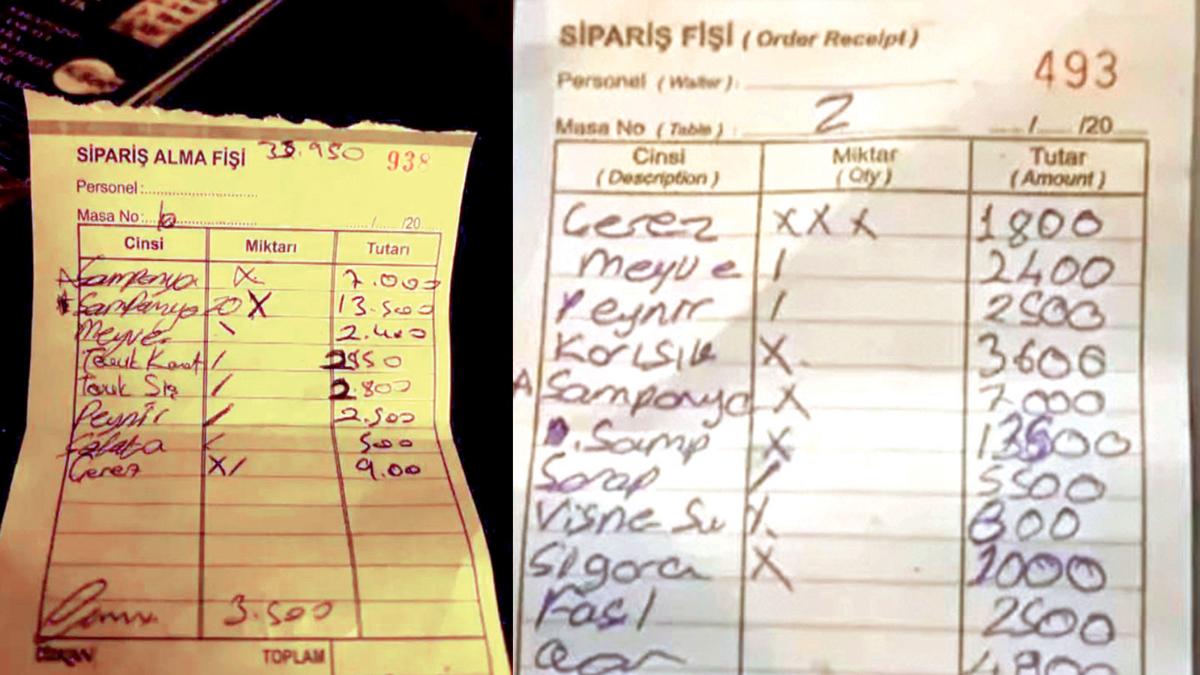 SİPARİŞ ALMA FİŞİ 938
Personel:
Masa No: 6 / /20
Cinsi Miktarı Tutarı
Şampanya X 7.000
Şampanya X 13.500
Meyve \ 2.400
Tavuk / 2950
Tavuk Şiş / 2.800
Peynir / 2.500
Salata 500
Çerez X/ 9.00
3.500
TOPLAM
SİPARİŞ FİŞİ (Order Receipt)
493
Personel (Waiter):
Masa No (Table): 2 / /20
Cinsi Miktar Tutar
(Description) (Qty) (Amount)
Çerez X X X 1800
Meyve / 2400
Peynir / 2500
X 3600
A Şampanya X 7000
Şamp X 13500
Şarap / 5500
Vişne Su 800
Sigara X 1000
Fasıl 2500